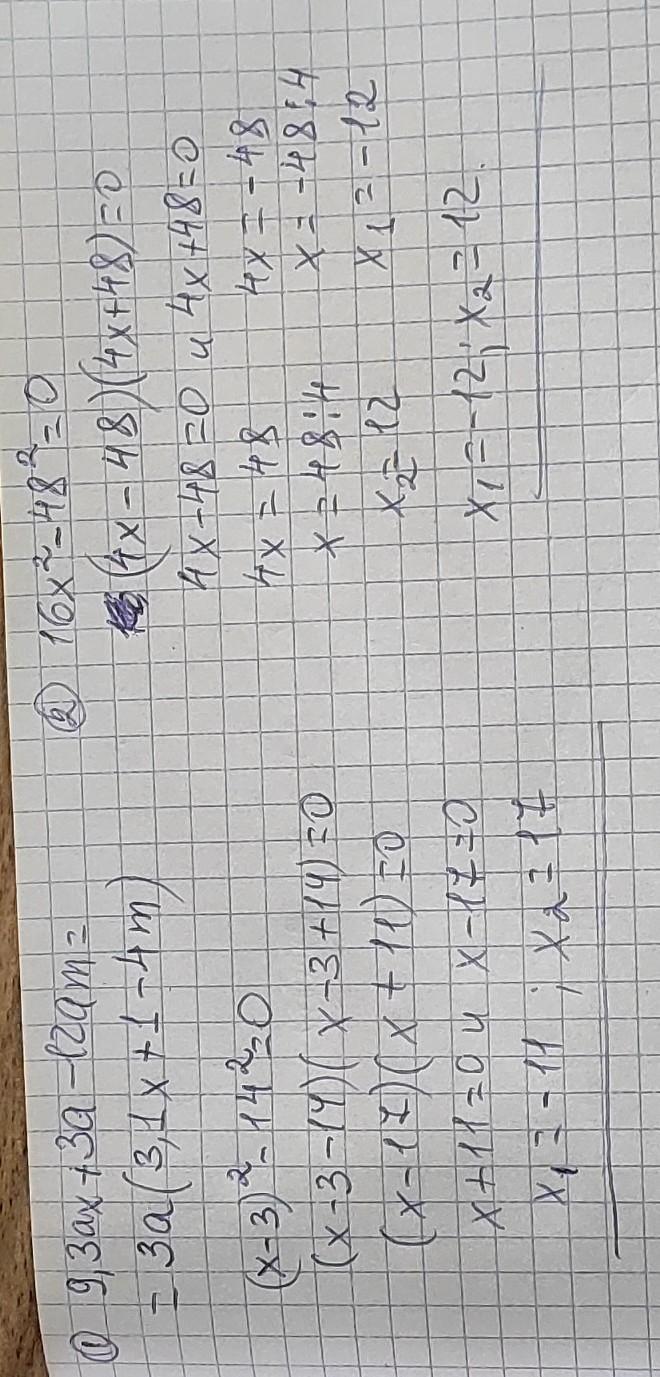 ① 9,3ax+3a-12am=
= 3a(3,1x+1-4m)
(x-3)²-14²=0
(x-3-14)(x-3+14)=0
(x-17)(x+11)=0
x+11=0 и x-17=0
x₁=-11 ; x₂=17
② 16x²-48²=0
(4x-48)(4x+48)=0
4x-48=0 и 4x+48=0
4x=48 4x=-48
x=48:4 x=-48:4
x₂=12 x₁=-12
x₁=-12; x₂=12.